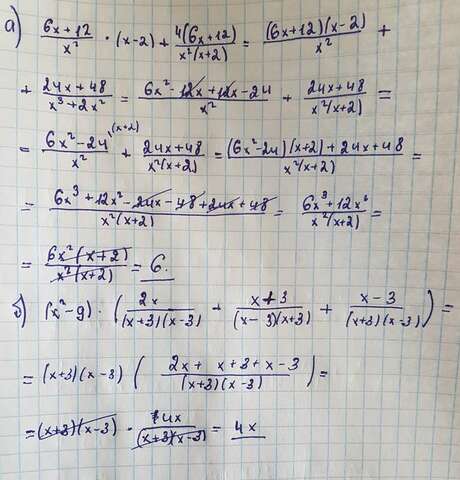 а) (6x+12)/x² · (x-2) + 4(6x+12)/x²(x+2) = (6x+12)(x-2)/x² +
+ (24x+48)/(x³+2x²) = (6x²-12x+12x-24)/x² + (24x+48)/x²(x+2) =
= (6x²-24)/x² ^(x+2) + (24x+48)/x²(x+2) = ((6x²-24)(x+2)+24x+48)/x²(x+2) =
= (6x³+12x²-24x-48+24x+48)/x²(x+2) = (6x³+12x²)/x²(x+2) =
= 6x²(x+2)/x²(x+2) = 6.
б) (x²-9) · (2x/(x+3)(x-3) + (x+3)/(x-3)(x+3) + (x-3)/(x+3)(x-3)) =
= (x+3)(x-3) ((2x+x+3+x-3)/(x+3)(x-3)) =
= (x+3)(x-3) · 4x/(x+3)(x-3) = 4x